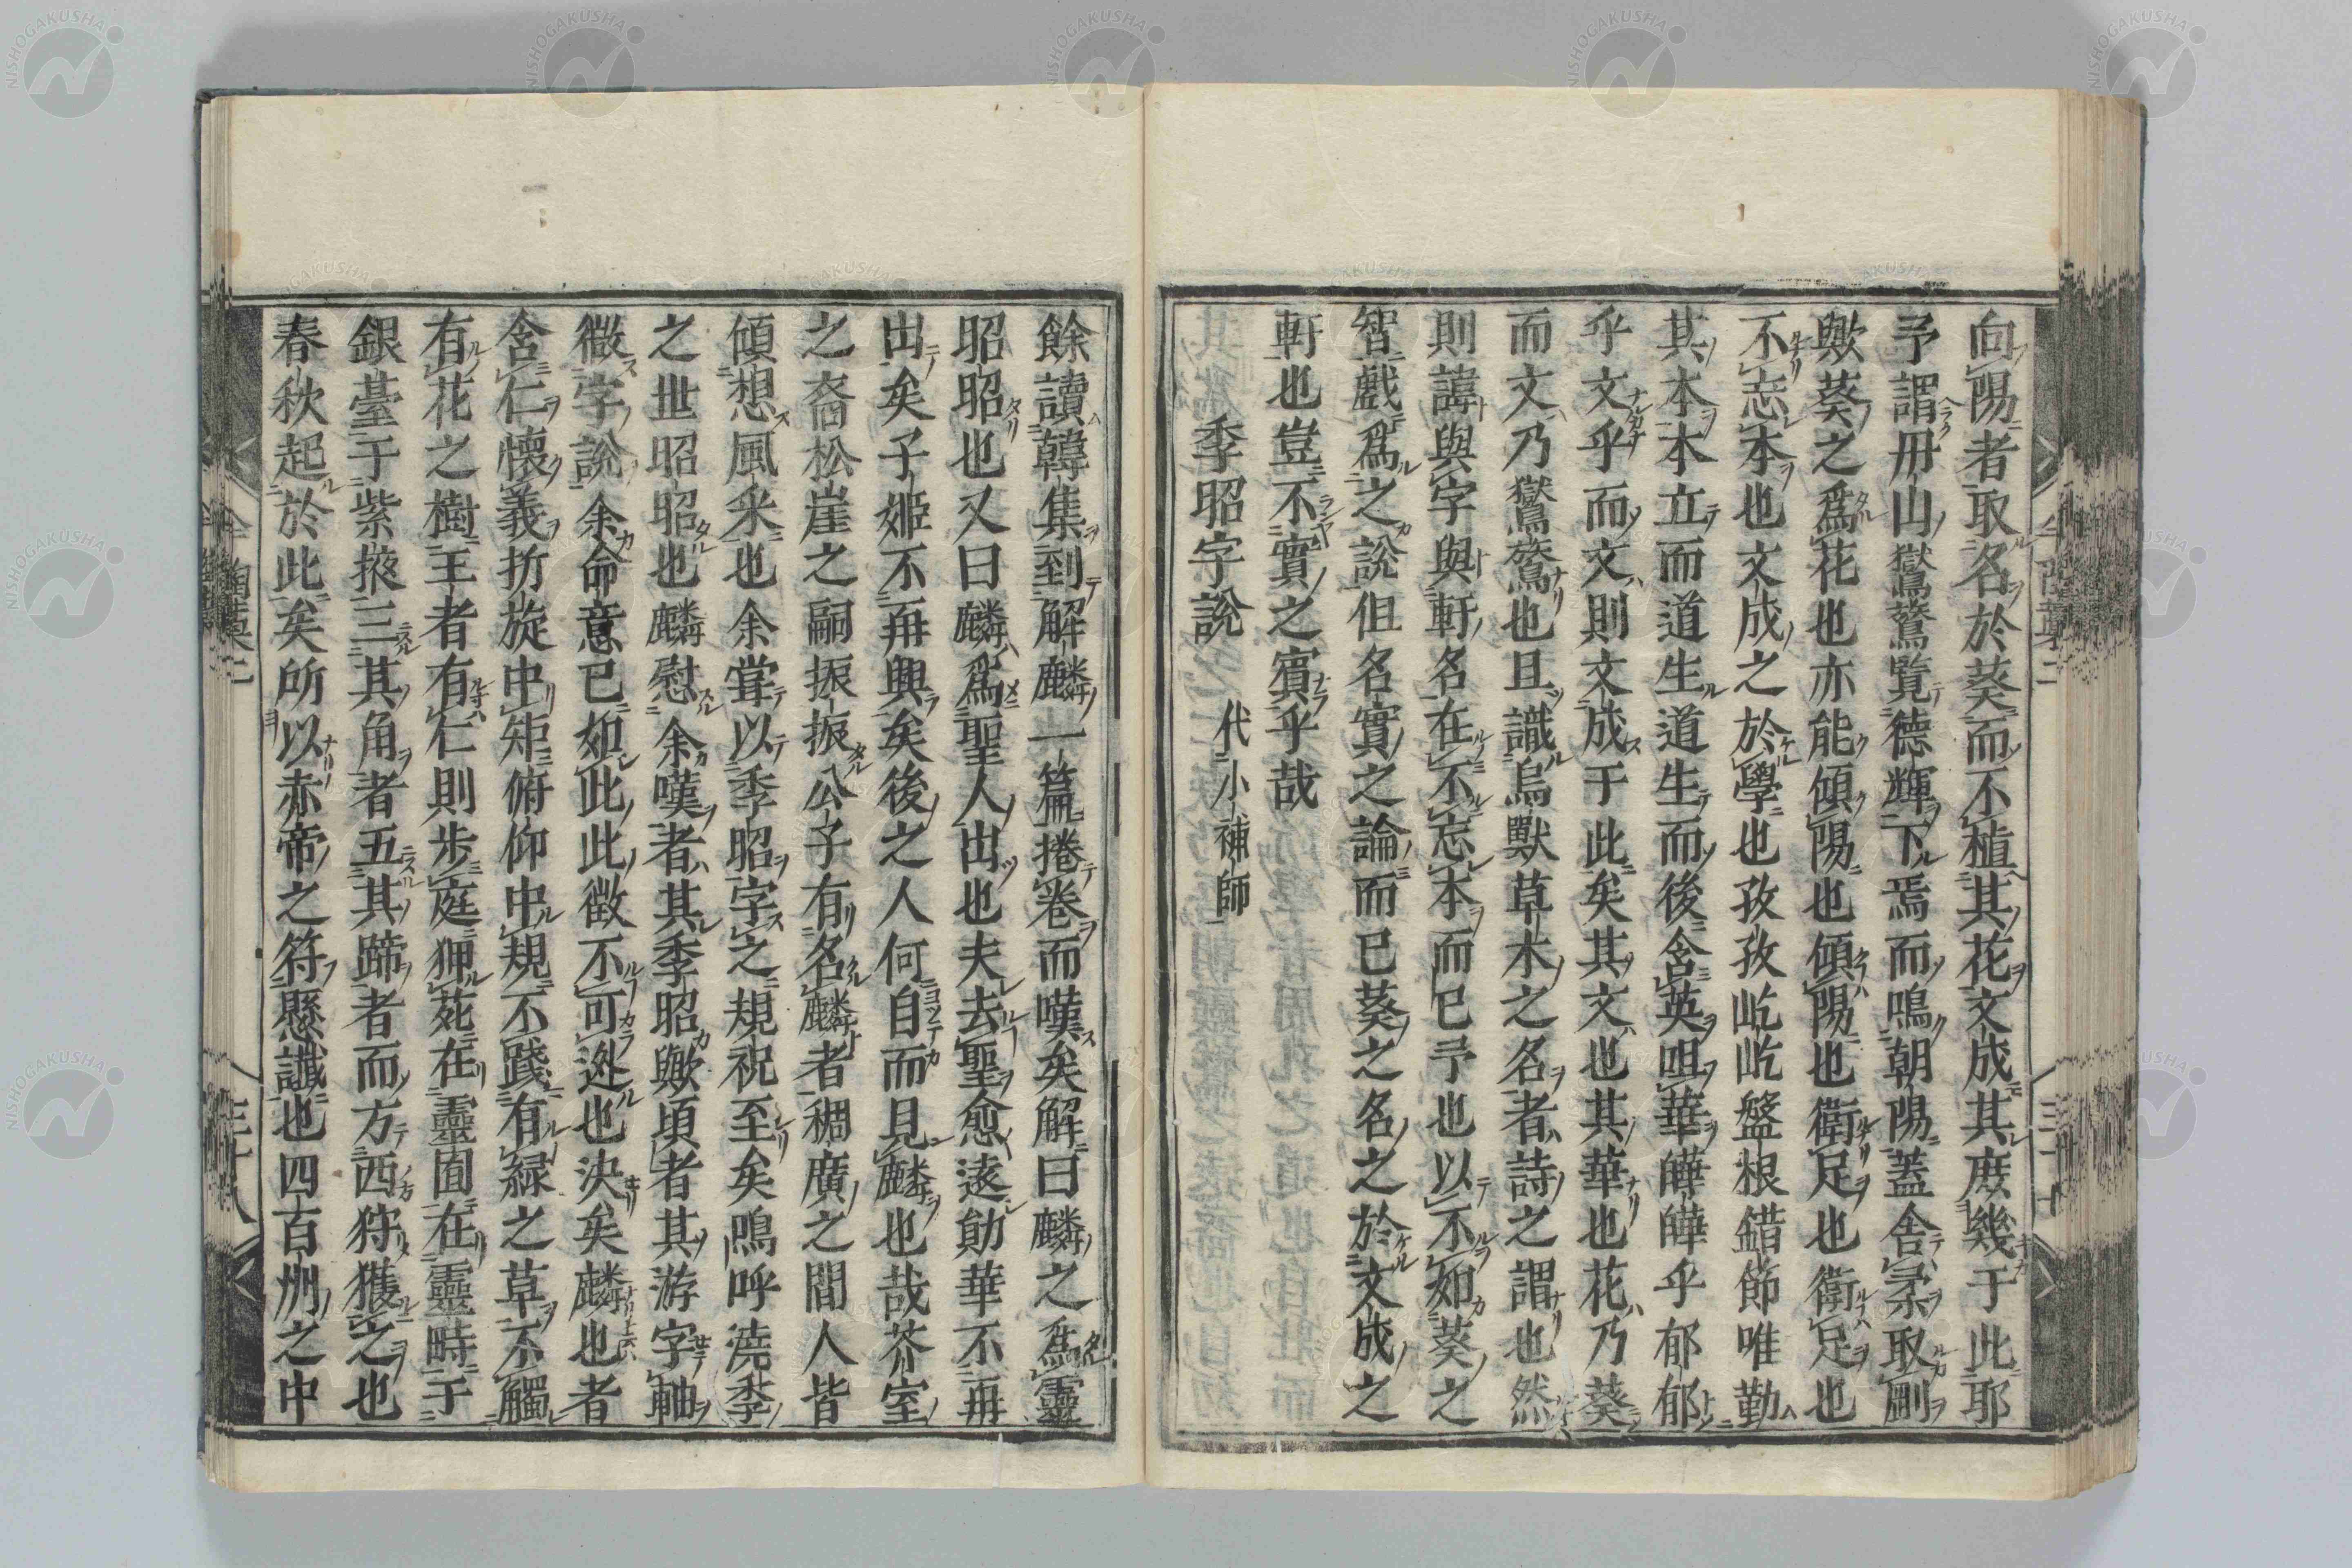 向陽者取名於葵而不植其花文成其庶幾于此耶
予謂丹山鸑鷟覽德輝下焉而鳴朝陽蓋舍柔取剛
歟葵之爲花也亦能傾陽也傾陽也衛足也衛足也
不忘本也文成之於學也孜孜屹屹盤根錯節唯勤
其本本立而道生道生而後含英咀華皣皣乎郁郁
乎文乎而文則文成于此矣其文也其華也花乃葵
而文乃鸑鷟也且識鳥獸草木之名者詩之謂也然
則諱與字與軒名在不忘本而已予也以不如葵之
智戲爲之說但名實之論而已葵之名之於文成之
軒也豈不實之賓乎哉
季昭字說 代小補師
餘讀韓集到解麟一篇捲卷而嘆矣解曰麟之爲靈
昭昭也又曰麟爲聖人出也夫去聖愈遠勛華不再
出矣子姬不再興矣後之人何自而見麟也哉芥室
之裔松崖之嗣振振公子有名麟者稠廣之間人皆
傾想風采也余甞以季昭字之規祝至矣嗚呼澆季
之世昭昭也麟慰余嘆者其季昭歟頃者其游字軸
徵字說余命意已如此此徵不可逃也決矣麟也者
含仁懷義折旋中矩俯仰中規不踐有緑之草不觸
有花之樹王者有仁則步庭狎苑在靈囿在靈畤于
銀臺于紫掖三其角者五其蹄者而方西狩獲之也
春秋起於此矣所以赤帝之符懸讖也四百州之中